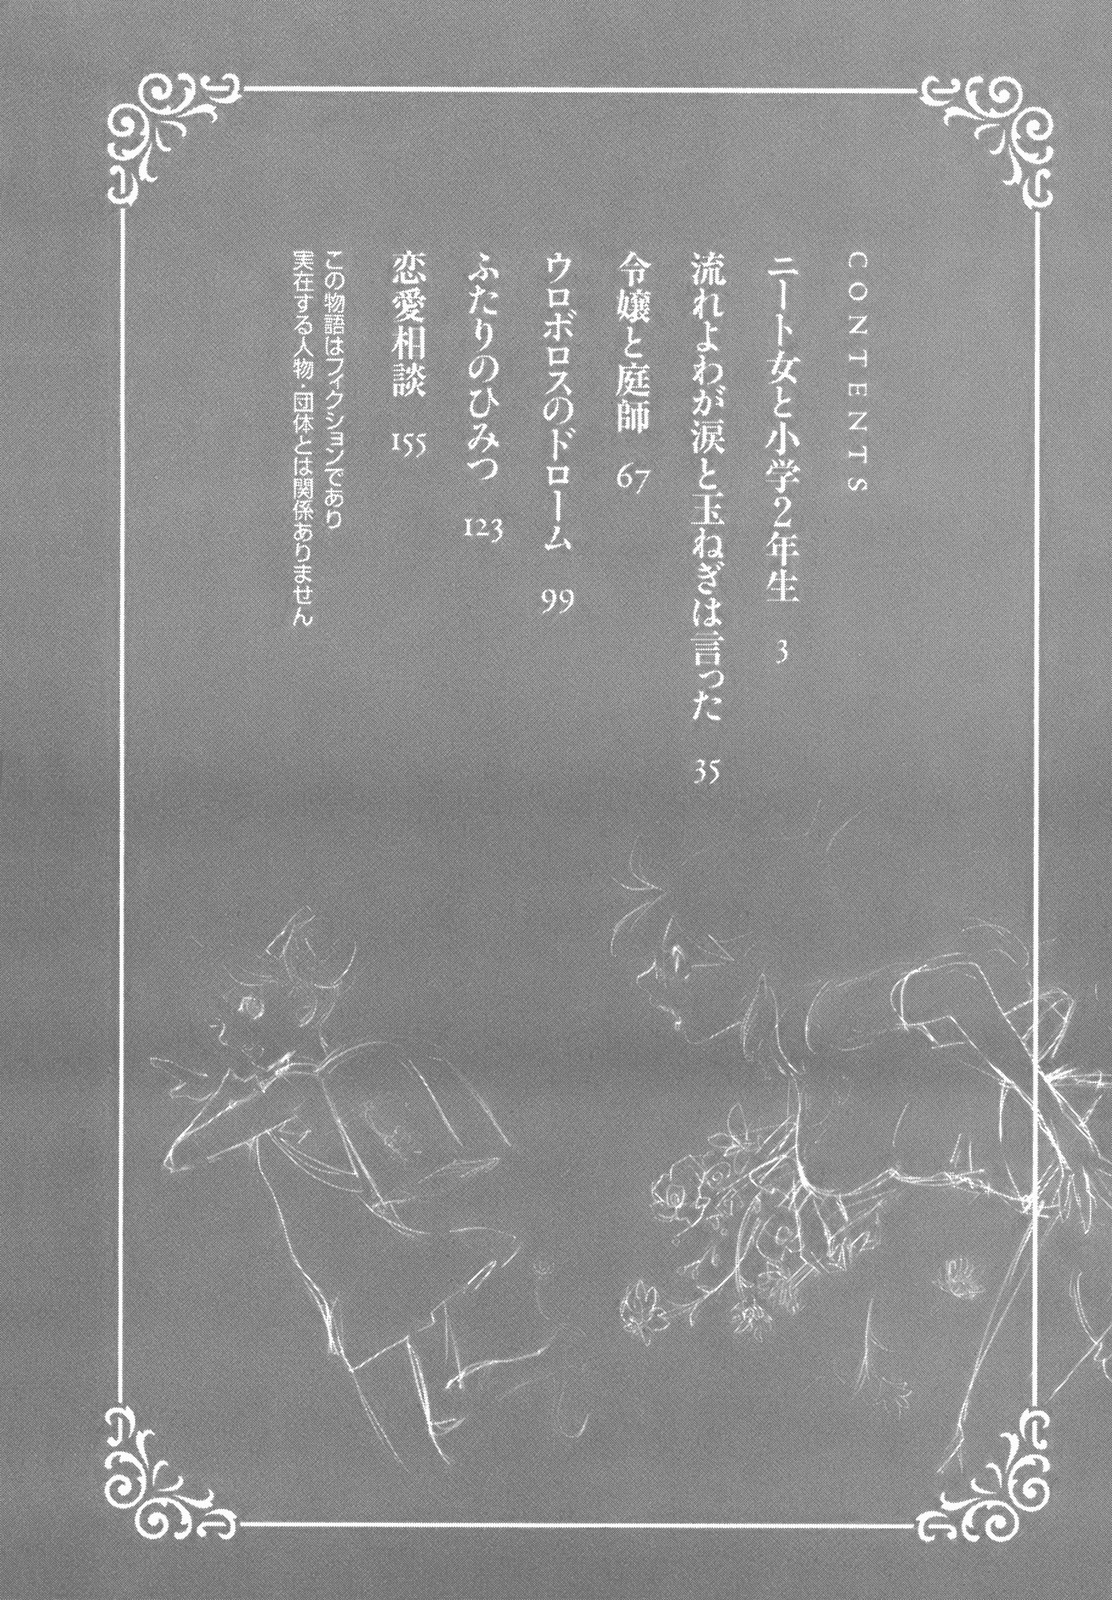 CONTENTS
ニート女と小学2年生 3
流れよわが涙と玉ねぎは言った 35
令嬢と庭師 67
ウロボロスのドローム 99
ふたりのひみつ 123
恋愛相談 155
この物語はフィクションであり
実在する人物・団体とは関係ありません